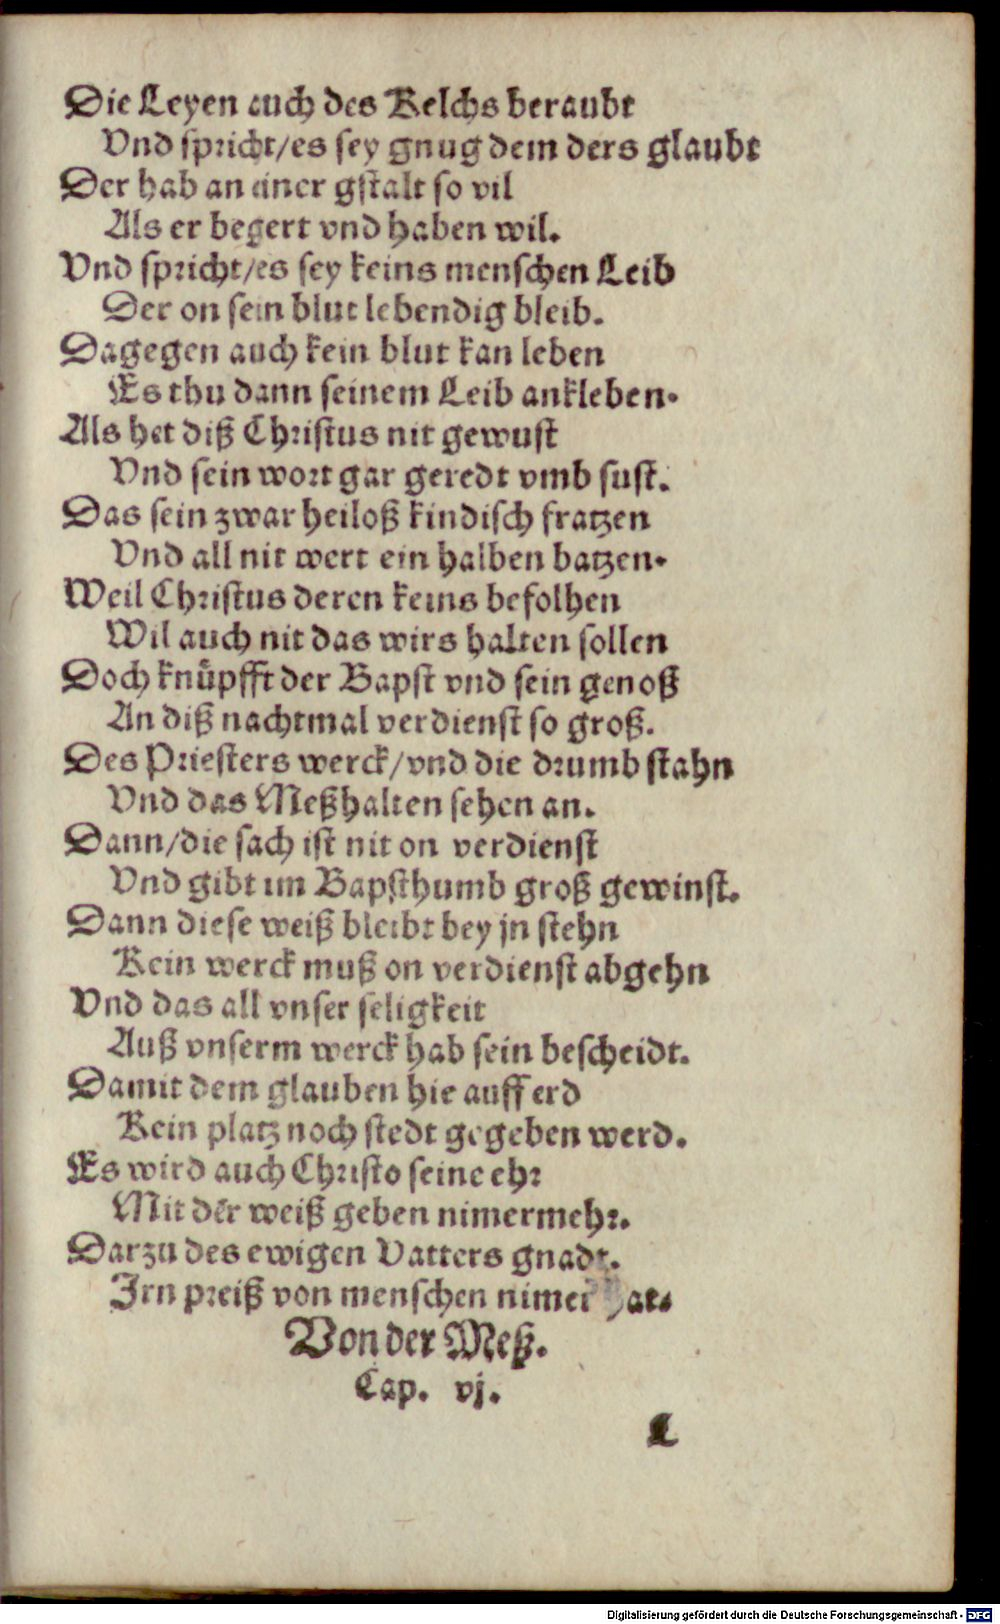 Die Leyen auch des Kelchs beraubt
Vnd spricht/es sey gnug dem ders glaubt
Der hab an einer gstalt so vil
Als er begert vnd haben wil.
Vnd spricht/es sey keins menschen Leib
Der on sein blut lebendig bleib.
Dagegen auch kein blut kan leben
Es thu dann seinem Leib ankleben.
Als het diß Christus nit gewust
Vnd sein wort gar geredt vmb sust.
Das sein zwar heiloß kindisch fratzen
Vnd all nit wert ein halben batzen.
Weil Christus deren keins befolhen
Wil auch nit das wirs halten sollen
Doch knüpfft der Bapst vnd sein genoß
An diß nachtmal verdienst so groß.
Des Priesters werck/vnd die drumb stahn
Vnd das Meßhalten sehen an.
Dann/die sach ist nit on verdienst
Vnd gibt im Bapsthumb groß gewinst.
Dann diese weiß bleibt bey jn stehn
Kein werck muß on verdienst abgehn
Vnd das all vnser seligkeit
Auß vnserm werck hab sein bescheidt.
Damit dem glauben hie auff erd
Kein platz noch stedt gegeben werd.
Es wird auch Christo seine ehr
Mit der weiß geben nimermehr.
Darzu des ewigen Vatters gnadt.
Jrn preiß von menschen nimer hat.
Von der Meß.
Cap. vj.
L
Digitalisierung gefördert durch die Deutsche Forschungsgemeinschaft - DFG